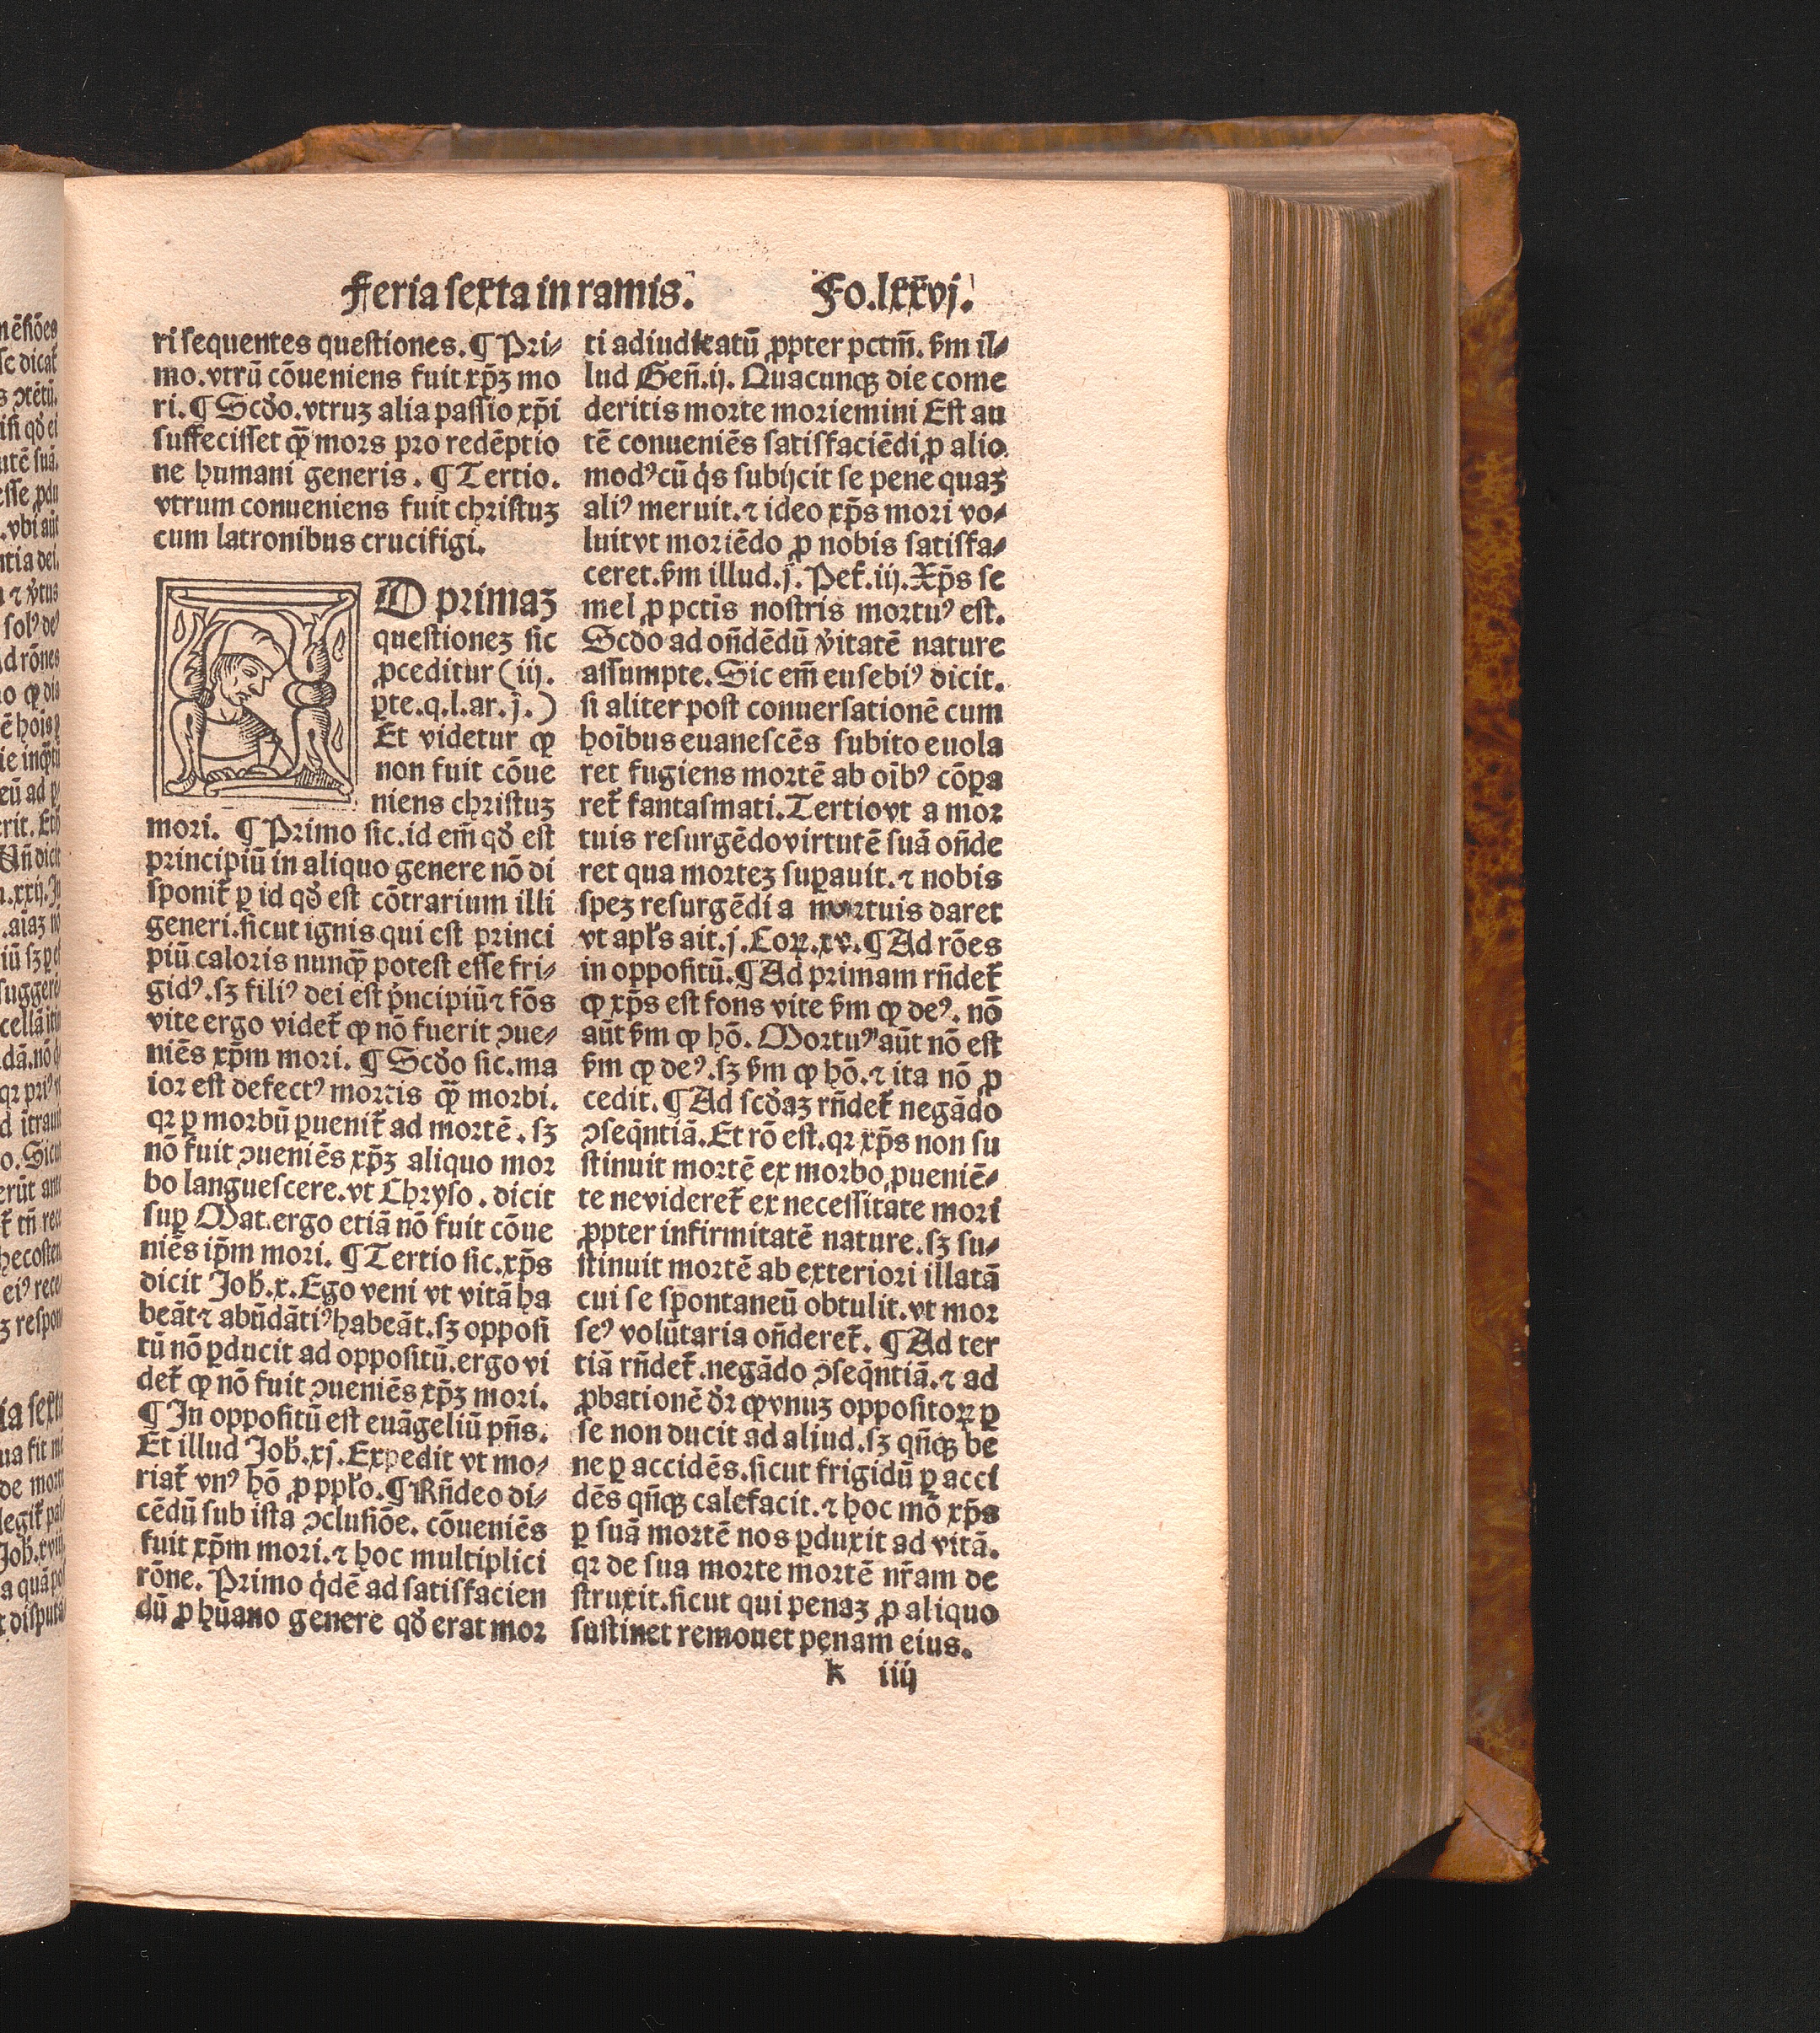 Feria sexta in ramis. Fo.lxxvj.
ri sequentes questiones. ¶ Pri-
mo. vtrū cōueniens fuit xp̄ꝫ mo
ri. ¶ Scd̓o. vtruꝫ alia passio xp̄i
suffecisset qꝫ̄ mors pro redēptio
ne humani generis. ¶ Tertio.
vtrum conueniens fuit christuꝫ
cum latronibus crucifigi.
D primaꝫ
questioneꝫ sic
ꝓceditur (iij.
ꝑte.q.l.ar.j.)
Et videtur ꝙ
non fuit cōue
niens christuꝫ
mori. ¶ Primo sic. id em̄ qd̓ est
principiū in aliquo genere nō di
sponit̄ ꝑ id qd̓ est cōtrarium illi
generi. sicut ignis qui est princi
piū caloris nunqꝫ̄ potest esse fri-
gidꝰ. sꝫ filiꝰ dei est p̓ncipiū ⁊ fōs
vite ergo videt̄ ꝙ nō fuerit ↄue-
niēs xp̄m mori. ¶ Scd̓o sic. ma
ior est defectꝰ mortis qꝫ̄ morbi.
qꝛ ꝑ morbū ꝑuenit̄ ad mortē. sꝫ
nō fuit ↄueniēs xp̄ꝫ aliquo mor
bo languescere. vt Chryso. dicit
suꝑ Mat. ergo etiā nō fuit cōue
niēs ip̄m mori. ¶ Tertio sic. xp̄s
dicit Joh̓.x. Ego veni vt vitā ha
beāt ⁊ abūdātiꝰ habeāt. sꝫ opposi
tū nō ꝑducit ad oppositū. ergo vi
det̄ ꝙ nō fuit ↄueniēs xp̄ꝫ mori.
¶ In oppositū est euāgeliū pn̄s.
Et illud Joh̓.xj. Expedit vt mo-
riat̄ vnꝰ hō ꝓ ppl̓o. ¶ Rn̄deo di-
cēdū sub ista ↄclusiōe. cōueniēs
fuit xp̄m mori. ⁊ hoc multiplici
rōne. Primo q̇dē ad satisfacien
dū ꝓ hūano genere qd̓ erat mor
ti adiudicatū ꝓpter pctm̄. ẜm il-
lud Gen̄.ij. Quacunqꝫ die come
deritis morte moriemini Est au
tē conueniēs satisfaciēdi ꝓ alio
modꝰ cū q̇s subijcit se pene quaꝫ
aliꝰ meruit. ⁊ ideo xp̄s mori vo-
luit vt moriēdo ꝓ nobis satisfa-
ceret. ẜm illud.j. Pet̄.iij. Xp̄s se
mel ꝓ pctīs nostris mortuꝰ est.
Scd̓o ad on̄dēdū v̓itatē nature
assumpte. Sic em̄ eusebiꝰ dicit.
si aliter post conuersationē cum
hoībus euanescēs subito euola
ret fugiens mortē ab oībꝰ cōꝑa
ret̄ fantasmati. Tertio vt a mor
tuis resurgēdo virtutē suā on̄de
ret qua morteꝫ suꝑauit. ⁊ nobis
speꝫ resurgēdi a mortuis daret
vt apl̓s ait.j. Coꝝ.xv. ¶ Ad rōes
in oppositū. ¶ Ad primam rn̄det̄
ꝙ xp̄s est fons vite ẜm ꝙ deꝰ. nō
aūt ẜm ꝙ hō. Mortuꝰ aūt nō est
ẜm ꝙ deꝰ. sꝫ ẜm ꝙ hō. ⁊ ita nō ꝓ
cedit. ¶ Ad scd̓aꝫ rn̄det̄ negādo
ↄseq̄ntiā. Et rō est. qꝛ xp̄s non su
stinuit mortē ex morbo ꝓueniē-
te ne videret̄ ex necessitate mori
ꝓpter infirmitatē nature. sꝫ su-
stinuit mortē ab exteriori illatā
cui se spontaneū obtulit. vt mor
seꝰ volūtaria on̄deret̄. ¶ Ad ter
tiā rn̄det̄. negādo ↄseq̄ntiā. ⁊ ad
ꝓbationē d̓r ꝙ vnuꝫ oppositoꝝ ꝑ
se non ducit ad aliud. sꝫ qn̄qꝫ be
ne ꝑ accidēs. sicut frigidū ꝑ acci
dēs qn̄qꝫ calefacit. ⁊ hoc mō xp̄s
ꝑ suā mortē nos ꝑduxit ad vitā.
qꝛ de sua morte mortē nr̄am de
struxit. sicut qui penaꝫ ꝓ aliquo
sustinet remouet penam eius.
k iiij